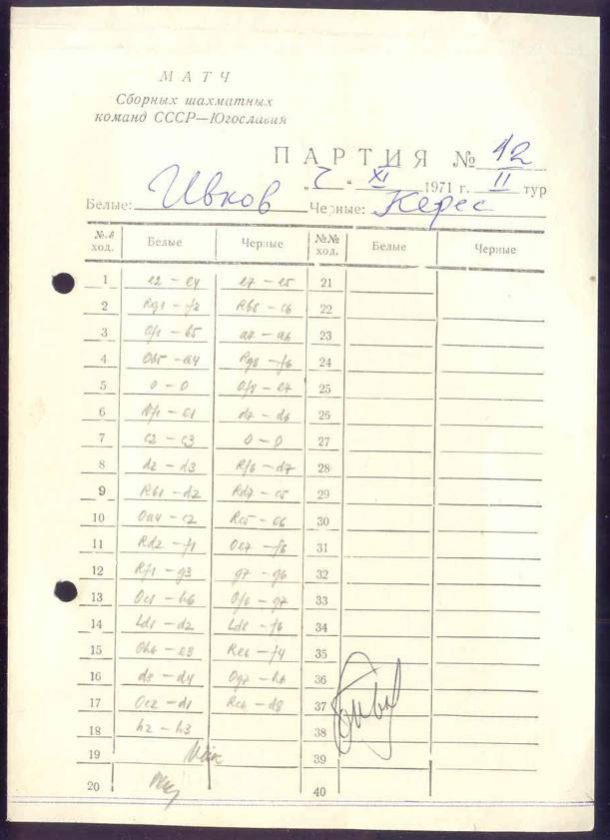 МАТЧ
Сборных шахматных
команд СССР—Югославия
ПАРТИЯ № 12
" " XI 1971 г. II тур
Белые: Ивков Черные: Керес
№№ ход. Белые Черные №№ ход. Белые Черные
1 e2 – e4 e7 – e5 21
2 Rg1 – f3 Rb8 – c6 22
3 Of1 – b5 a7 – a6 23
4 Ob5 – a4 Rg8 – f6 24
5 0 – 0 Of8 – e7 25
6 Vf1 – e1 d7 – d6 26
7 c2 – c3 0 – 0 27
8 d2 – d3 Rf6 – d7 28
9 Rb1 – d2 Rd7 – c5 29
10 Oa4 – c2 Rc5 – e6 30
11 Rd2 – f1 Oe7 – f6 31
12 Rf1 – g3 g7 – g6 32
13 Oc1 – h6 Of6 – g7 33
14 Ld1 – d2 Ld8 – f6 34
15 Oh6 – e3 Re6 – f4 35
16 d3 – d4 Og7 – h6 36
17 Oc2 – d1 Rc6 – d8 37
18 h2 – h3 38
19 Viik 39
20 40